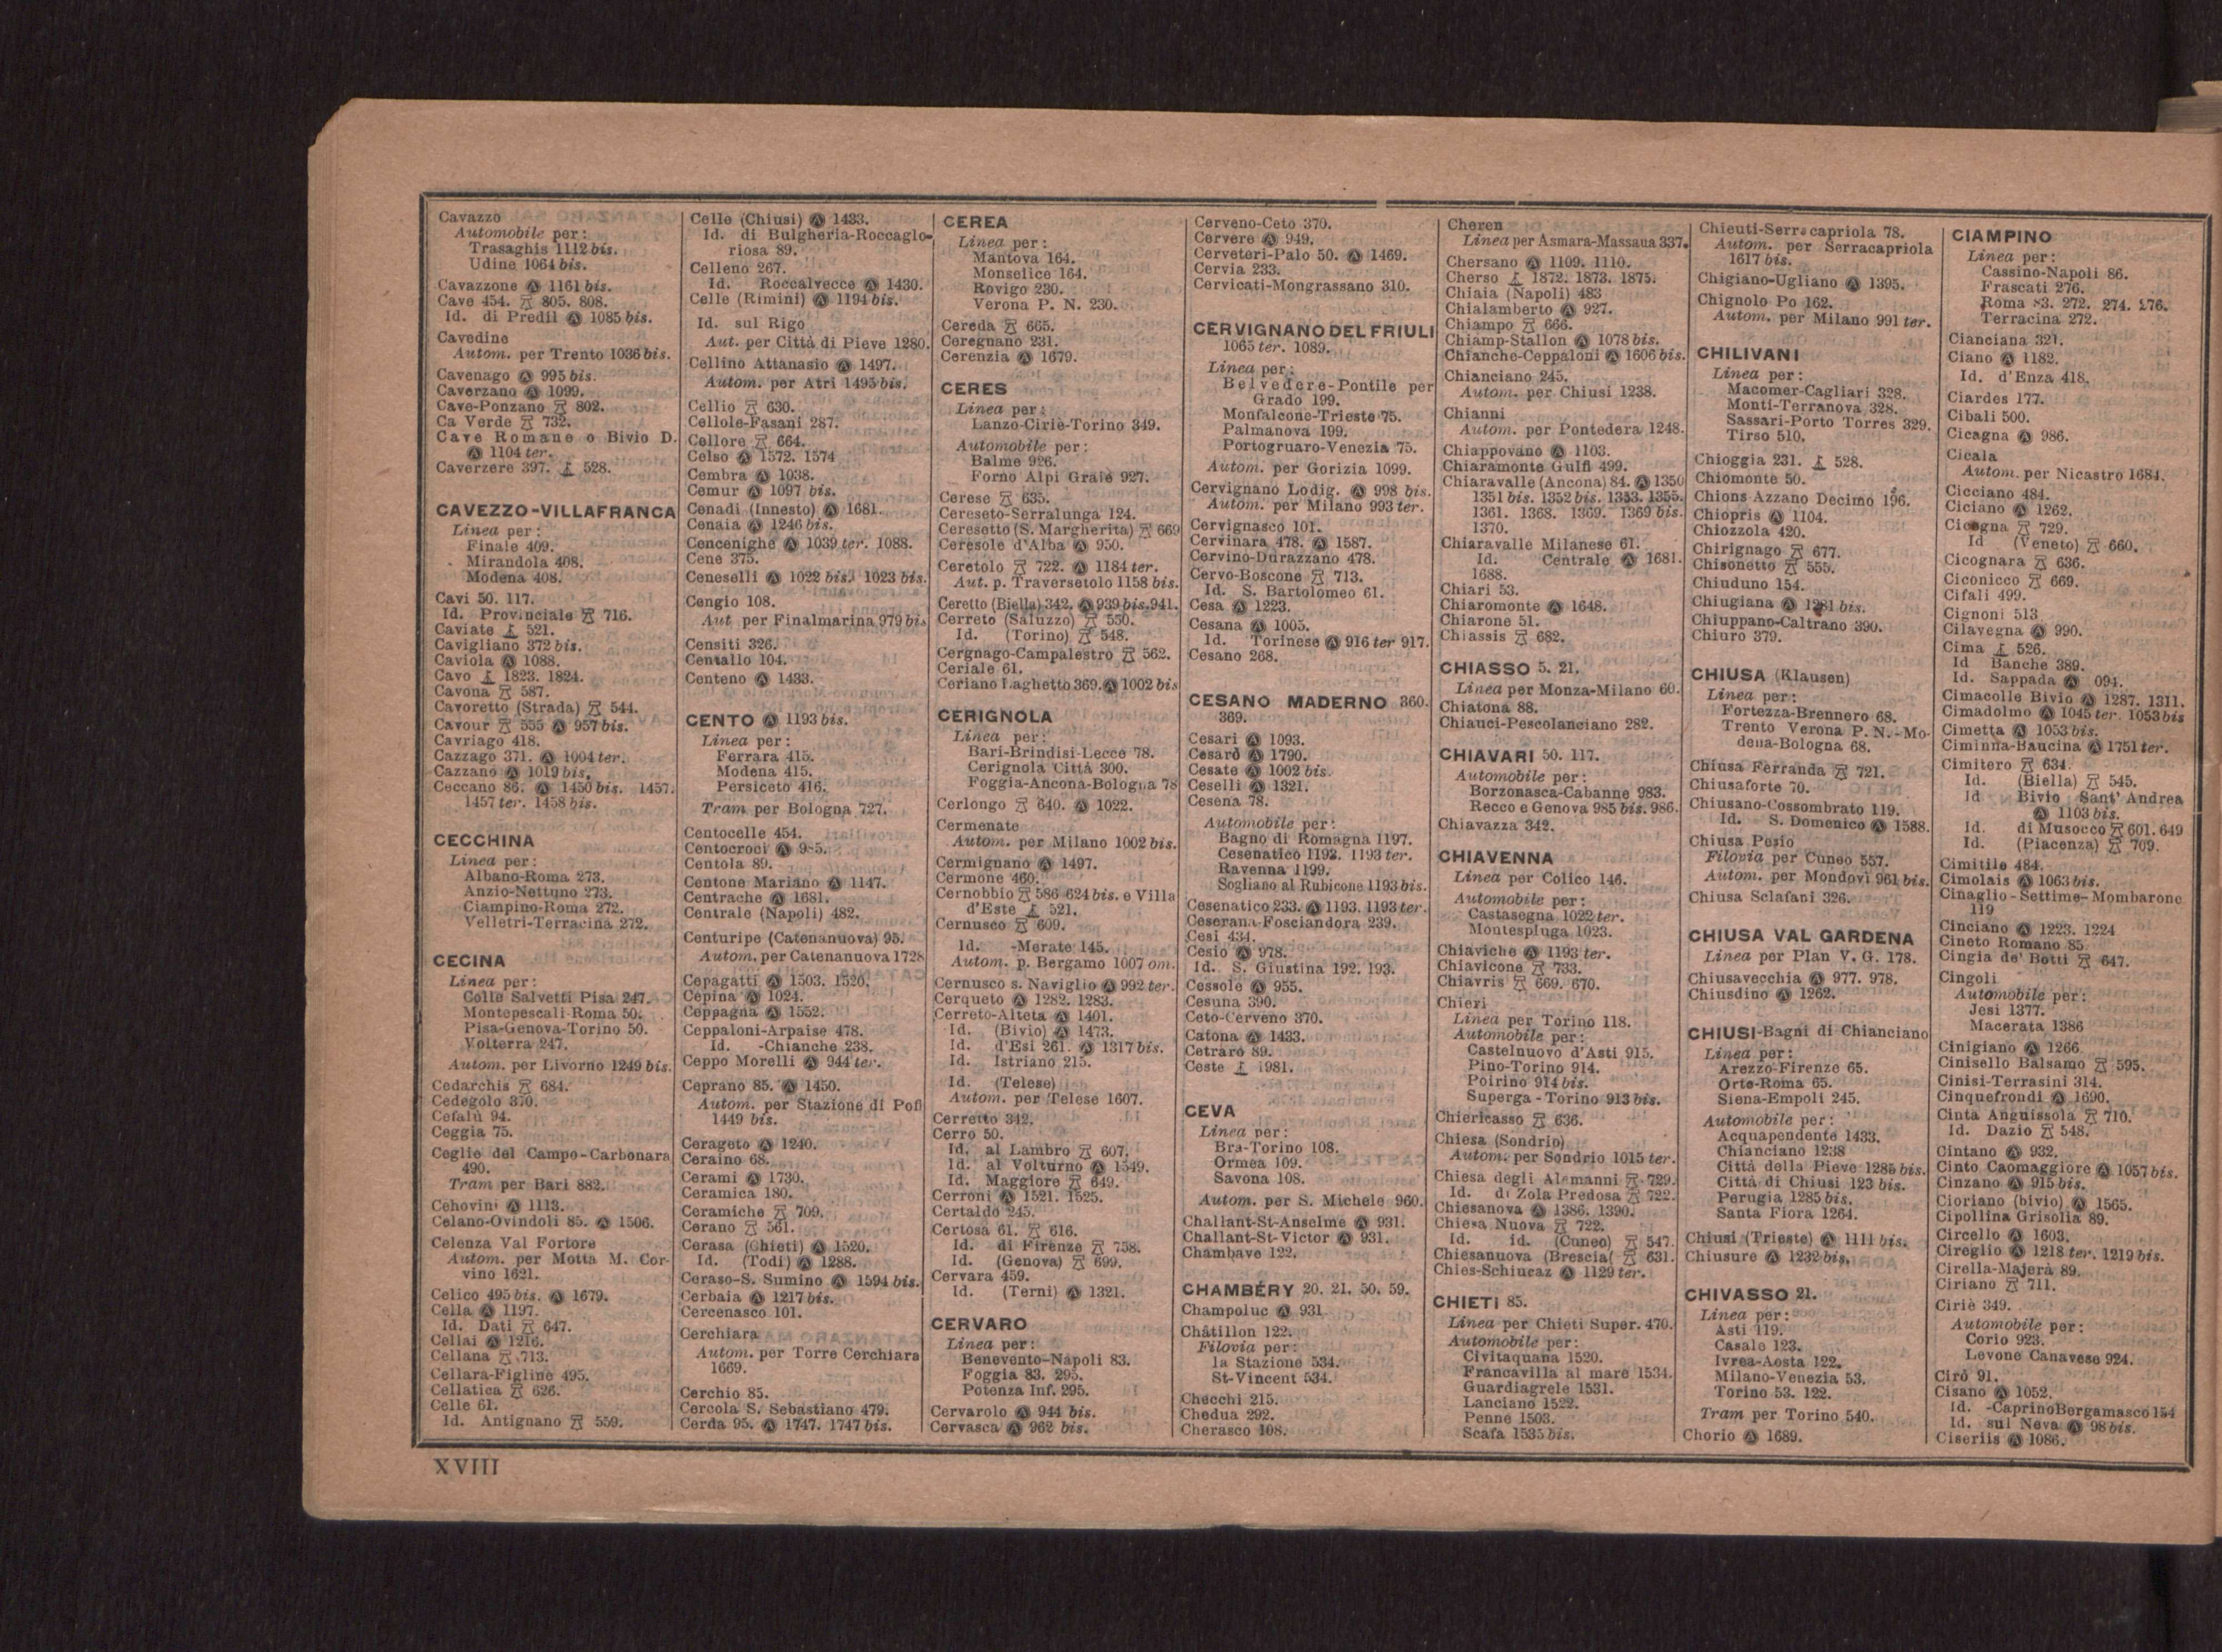 Cavazzo
Automobile per:
Trasaghis 1112 bis.
Udine 1064 bis.
Cavazzone Ⓐ 1161 bis.
Cave 454. 805. 808.
Id. di Predil Ⓐ 1085 bis.
Cavedine
Autom. per Trento 1036 bis.
Cavenago Ⓐ 995 bis.
Caverzano Ⓐ 1099.
Cave-Ponzano 802.
Ca Verde 732.
Cave Romane o Bivio D.
Ⓐ 1104 ter.
Caverzere 397. 528.
CAVEZZO-VILLAFRANCA
Linea per:
Finale 409.
Mirandola 408.
Modena 408.
Cavi 50. 117.
Id. Provinciale 716.
Caviate 521.
Cavigliano 372 bis.
Caviola Ⓐ 1088.
Cavo 1823. 1824.
Cavona 587.
Cavoretto (Strada) 544.
Cavour 555 Ⓐ 957 bis.
Cavriago 418.
Cazzago 371. Ⓐ 1004 ter.
Cazzano Ⓐ 1019 bis.
Ceccano 86. Ⓐ 1450 bis. 1457.
1457 ter. 1458 bis.
CECCHINA
Linea per:
Albano-Roma 273.
Anzio-Nettuno 273.
Ciampino-Roma 272.
Velletri-Terracina 272.
CECINA
Linea per:
Colle Salvetti Pisa 247.
Montepescali-Roma 50.
Pisa-Genova-Torino 50.
Volterra 247.
Autom. per Livorno 1249 bis.
Cedarchis 684.
Cedegolo 370.
Cefalù 94.
Ceggia 75.
Ceglie del Campo-Carbonara
490.
Tram per Bari 882.
Cehovini Ⓐ 1113.
Celano-Ovindoli 85. Ⓐ 1506.
Celenza Val Fortore
Autom. per Motta M. Cor-
vino 1621.
Celico 495 bis. Ⓐ 1679.
Cella Ⓐ 1197.
Id. Dati 647.
Cellai Ⓐ 1216.
Cellana 713.
Cellara-Figline 495.
Cellatica 626.
Celle 61.
Id. Antignano 559.
Celle (Chiusi) Ⓐ 1433.
Id. di Bulgheria-Roccaglo-
riosa 89.
Celleno 267.
Id. Roccalvecce Ⓐ 1430.
Celle (Rimini) Ⓐ 1194 bis.
Id. sul Rigo
Aut. per Città di Pieve 1280.
Cellino Attanasio Ⓐ 1497.
Autom. per Atri 1495 bis.
Cellio 630.
Cellole-Fasani 287.
Cellore 664.
Celso Ⓐ 1572. 1574
Cembra Ⓐ 1038.
Cemur Ⓐ 1097 bis.
Cenadi (Innesto) Ⓐ 1681.
Cenaia Ⓐ 1246 bis.
Cencenighe Ⓐ 1039 ter. 1088.
Cene 375.
Ceneselli Ⓐ 1022 bis. 1023 bis.
Cengio 108.
Aut per Finalmarina 979 bis
Censiti 326.
Centallo 104.
Centeno Ⓐ 1433.
CENTO Ⓐ 1193 bis.
Linea per:
Ferrara 415.
Modena 415.
Persiceto 416.
Tram per Bologna 727.
Centocelle 454.
Centocroci Ⓐ 985.
Centola 89.
Centone Mariano Ⓐ 1147.
Centrache Ⓐ 1681.
Centrale (Napoli) 482.
Centuripe (Catenanuova) 95.
Autom. per Catenanuova 1728
Cepagatti Ⓐ 1503. 1520.
Cepina Ⓐ 1024.
Ceppagna Ⓐ 1552.
Ceppaloni-Arpaise 478.
Id. -Chianche 238.
Ceppo Morelli Ⓐ 944 ter.
Ceprano 85. Ⓐ 1450.
Autom. per Stazione di Pofi
1449 bis.
Cerageto Ⓐ 1240.
Ceraino 68.
Cerami Ⓐ 1730.
Ceramica 180.
Ceramiche 709.
Cerano 561.
Cerasa (Chieti) Ⓐ 1520.
Id. (Todi) Ⓐ 1288.
Ceraso-S. Sumino Ⓐ 1594 bis.
Cerbaia Ⓐ 1217 bis.
Cercenasco 101.
Cerchiara
Autom. per Torre Cerchiara
1669.
Cerchio 85.
Cercola S. Sebastiano 479.
Cerda 95. Ⓐ 1747. 1747 bis.
CEREA
Linea per:
Mantova 164.
Monselice 164.
Rovigo 230.
Verona P. N. 230.
Cereda 665.
Ceregnano 231.
Cerenzia Ⓐ 1679.
CERES
Linea per:
Lanzo-Ciriè-Torino 349.
Automobile per:
Balme 926.
Forno Alpi Graie 927.
Cerese 635.
Cereseto-Serralunga 124.
Ceresetto (S. Margherita) 669
Ceresole d'Alba Ⓐ 950.
Ceretolo 722. Ⓐ 1184 ter.
Aut. p. Traversetolo 1158 bis.
Ceretto (Biella) 342. Ⓐ 939 bis. 941.
Cerreto (Saluzzo) 550.
Id. (Torino) 548.
Cergnago-Campalestro 562.
Ceriale 61.
Ceriano Laghetto 369. Ⓐ 1002 bis
CERIGNOLA
Linea per:
Bari-Brindisi-Lecce 78.
Cerignola Città 300.
Foggia-Ancona-Bologna 78
Cerlongo 640. Ⓐ 1022.
Cermenate
Autom. per Milano 1002 bis.
Cermignano Ⓐ 1497.
Cermone 460.
Cernobbio 586 624 bis. e Villa
d'Este 521.
Cernusco 609.
Id. -Merate 145.
Autom. p. Bergamo 1007 om.
Cernusco s. Naviglio Ⓐ 992 ter.
Cerqueto Ⓐ 1282. 1283.
Cerreto-Alteta Ⓐ 1401.
Id. (Bivio) Ⓐ 1473.
Id. d'Esi 261. Ⓐ 1317 bis.
Id. Istriano 215.
Id. (Telese)
Autom. per Telese 1607.
Cerretto 342.
Cerro 50.
Id. al Lambro 607.
Id. al Volturno Ⓐ 1549.
Id. Maggiore 649.
Cerroni Ⓐ 1521. 1525.
Certaldo 245.
Certosa 61. 616.
Id. di Firenze 758.
Id. (Genova) 699.
Cervara 459.
Id. (Terni) Ⓐ 1321.
CERVARO
Linea per:
Benevento-Napoli 83.
Foggia 83. 295.
Potenza Inf. 295.
Cervarolo Ⓐ 944 bis.
Cervasca Ⓐ 962 bis.
Cerveno-Ceto 370.
Cervere Ⓐ 949.
Cerveteri-Palo 50. Ⓐ 1469.
Cervia 233.
Cervicati-Mongrassano 310.
CERVIGNANO DEL FRIULI
1065 ter. 1089.
Linea per:
Belvedere-Pontile per
Grado 199.
Monfalcone-Trieste 75.
Palmanova 199.
Portogruaro-Venezia 75.
Autom. per Gorizia 1099.
Cervignano Lodig. Ⓐ 998 bis.
Autom. per Milano 993 ter.
Cervignasco 101.
Cervinara 478. Ⓐ 1587.
Cervino-Durazzano 478.
Cervo-Boscone 713.
Id. S. Bartolomeo 61.
Cesa Ⓐ 1223.
Cesana Ⓐ 1005.
Id. Torinese Ⓐ 916 ter 917.
Cesano 268.
CESANO MADERNO 360.
369.
Cesari Ⓐ 1093.
Cesarò Ⓐ 1790.
Cesate Ⓐ 1002 bis.
Ceselli Ⓐ 1321.
Cesena 78.
Automobile per:
Bagno di Romagna 1197.
Cesenatico 1192. 1193 ter.
Ravenna 1199.
Sogliano al Rubicone 1193 bis.
Cesenatico 233. Ⓐ 1193. 1193 ter.
Ceserana-Fosciandora 239.
Cesi 434.
Cesio Ⓐ 978.
Id. S. Giustina 192. 193.
Cessole Ⓐ 955.
Cesuna 390.
Ceto-Cerveno 370.
Catona Ⓐ 1433.
Cetraro 89.
Ceste 1981.
CEVA
Linea per:
Bra-Torino 108.
Ormea 109.
Savona 108.
Autom. per S. Michele 960.
Challant-St-Anselme Ⓐ 931.
Challant-St-Victor Ⓐ 931.
Chambave 122.
CHAMBÉRY 20. 21. 50. 59.
Champoluc Ⓐ 931
Châtillon 122.
Filovia per:
la Stazione 534.
St-Vincent 534.
Checchi 215.
Chedua 292.
Cherasco 108.
Cheren
Linea per Asmara-Massaua 337.
Chersano Ⓐ 1109. 1110.
Cherso 1872. 1873. 1875.
Chiaia (Napoli) 483
Chialamberto Ⓐ 927.
Chiampo 666.
Chiamp-Stallon Ⓐ 1078 bis.
Chianche-Ceppaloni Ⓐ 1606 bis.
Chianciano 245.
Autom. per Chiusi 1238.
Chianni
Autom. per Pontedera 1248.
Chiappovano Ⓐ 1103.
Chiaramonte Gulfi 499.
Chiaravalle (Ancona) 84. Ⓐ 1350
1351 bis. 1352 bis. 1353. 1355.
1361. 1368. 1369. 1369 bis.
1370.
Chiaravalle Milanese 61.
Id. Centrale Ⓐ 1681.
1688.
Chiari 53.
Chiaromonte Ⓐ 1648.
Chiarone 51.
Chiassis 682.
CHIASSO 5. 21.
Linea per Monza-Milano 60.
Chiatona 88.
Chiauci-Pescolanciano 282.
CHIAVARI 50. 117.
Automobile per:
Borzonasca-Cabanne 983.
Recco e Genova 985 bis. 986.
Chiavazza 342.
CHIAVENNA
Linea per Colico 146.
Automobile per:
Castasegna 1022 ter.
Montespluga 1023.
Chiaviche Ⓐ 1193 ter.
Chiavicone 733.
Chiavris 669. 670.
Chieri
Linea per Torino 118.
Automobile per:
Castelnuovo d'Asti 915.
Pino-Torino 914.
Poirino 914 bis.
Superga-Torino 913 bis.
Chiericasso 636.
Chiesa (Sondrio)
Autom. per Sondrio 1015 ter.
Chiesa degli Alemanni 729.
Id. di Zola Predosa 722.
Chiesanova Ⓐ 1386. 1390.
Chiesa Nuova 722.
Id. id. (Cuneo) 547.
Chiesanuova (Brescia( 631.
Chies-Schiucaz Ⓐ 1129 ter.
CHIETI 85.
Linea per Chieti Super. 470.
Automobile per:
Civitaquana 1520.
Francavilla al mare 1534.
Guardiagrele 1531.
Lanciano 1522.
Penne 1503.
Scafa 1535 bis.
Chieuti-Serracapriola 78.
Autom. per Serracapriola
1617 bis.
Chigiano-Ugliano Ⓐ 1395.
Chignolo Po 162.
Autom. per Milano 991 ter.
CHILIVANI
Linea per:
Macomer-Cagliari 328.
Monti-Terranova 328.
Sassari-Porto Torres 329.
Tirso 510.
Chioggia 231. 528.
Chiomonte 50.
Chions Azzano Decimo 196.
Chiopris Ⓐ 1104.
Chiozzola 420.
Chirignago 677.
Chisonetto 555.
Chiuduno 154.
Chiugiana Ⓐ 1281 bis.
Chiuppano-Caltrano 390.
Chiuro 379.
CHIUSA (Klausen)
Linea per:
Fortezza-Brennero 68.
Trento Verona P. N.-Mo-
dena-Bologna 68.
Chiusa Ferranda 721.
Chiusaforte 70.
Chiusano-Cossombrato 119.
Id. S. Domenico Ⓐ 1588.
Chiusa Pesio
Filovia per Cuneo 557.
Autom. per Mondovì 961 bis.
Chiusa Sclafani 326.
CHIUSA VAL GARDENA
Linea per Plan V. G. 178.
Chiusavecchia Ⓐ 977. 978.
Chiusdino Ⓐ 1262.
CHIUSI-Bagni di Chianciano
Linea per:
Arezzo-Firenze 65.
Orte-Roma 65.
Siena-Empoli 245.
Automobile per:
Acquapendente 1433.
Chianciano 1238
Città della Pieve 1285 bis.
Città di Chiusi 123 bis.
Perugia 1285 bis.
Santa Fiora 1264.
Chiusi (Trieste) Ⓐ 1111 bis.
Chiusure Ⓐ 1232 bis.
CHIVASSO 21.
Linea per:
Asti 119.
Casale 123.
Ivrea-Aosta 122.
Milano-Venezia 53.
Torino 53. 122.
Tram per Torino 540.
Chorio Ⓐ 1689.
CIAMPINO
Linea per:
Cassino-Napoli 86.
Frascati 276.
Roma 83. 272. 274. 276.
Terracina 272.
Cianciana 321.
Ciano Ⓐ 1182.
Id. d'Enza 418.
Ciardes 177.
Cibali 500.
Cicagna Ⓐ 986.
Cicala
Autom. per Nicastro 1684.
Cicciano 484.
Ciciano Ⓐ 1262.
Cicogna 729.
Id (Veneto) 660.
Cicognara 636.
Ciconicco 669.
Cifali 499.
Cignoni 513
Cilavegna Ⓐ 990.
Cima 526.
Id Banche 389.
Id. Sappada Ⓐ 094.
Cimacolle Bivio Ⓐ 1287. 1311.
Cimadolmo Ⓐ 1045 ter. 1053 bis
Cimetta Ⓐ 1053 bis.
Ciminna-Baucina Ⓐ 1751 ter.
Cimitero 634.
Id. (Biella) 545.
Id Bivio Sant' Andrea
Ⓐ 1103 bis.
Id. di Musocco 601. 649
Id. (Piacenza) 709.
Cimitile 484.
Cimolais Ⓐ 1063 bis.
Cinaglio-Settime-Mombarone
119
Cinciano Ⓐ 1223. 1224
Cineto Romano 85
Cingia de' Botti 647.
Cingoli
Automobile per:
Jesi 1377.
Macerata 1386
Cinigiano Ⓐ 1266
Cinisello Balsamo 595.
Cinisi-Terrasini 314.
Cinquefrondi Ⓐ 1690.
Cinta Anguissola 710.
Id. Dazio 548.
Cintano Ⓐ 932.
Cinto Caomaggiore Ⓐ 1057 bis.
Cinzano Ⓐ 915 bis.
Cioriano (bivio) Ⓐ 1565.
Cipollina Grisolia 89.
Circello Ⓐ 1603.
Cireglio Ⓐ 1218 ter. 1219 bis.
Cirella-Majerà 89.
Ciriano 711.
Ciriè 349.
Automobile per:
Corio 923.
Levone Canavese 924.
Cirò 91.
Cisano Ⓐ 1052.
Id. -Caprino Bergamasco 154
Id. sul Neva Ⓐ 98 bis.
Ciseriis Ⓐ 1086.
XVIII